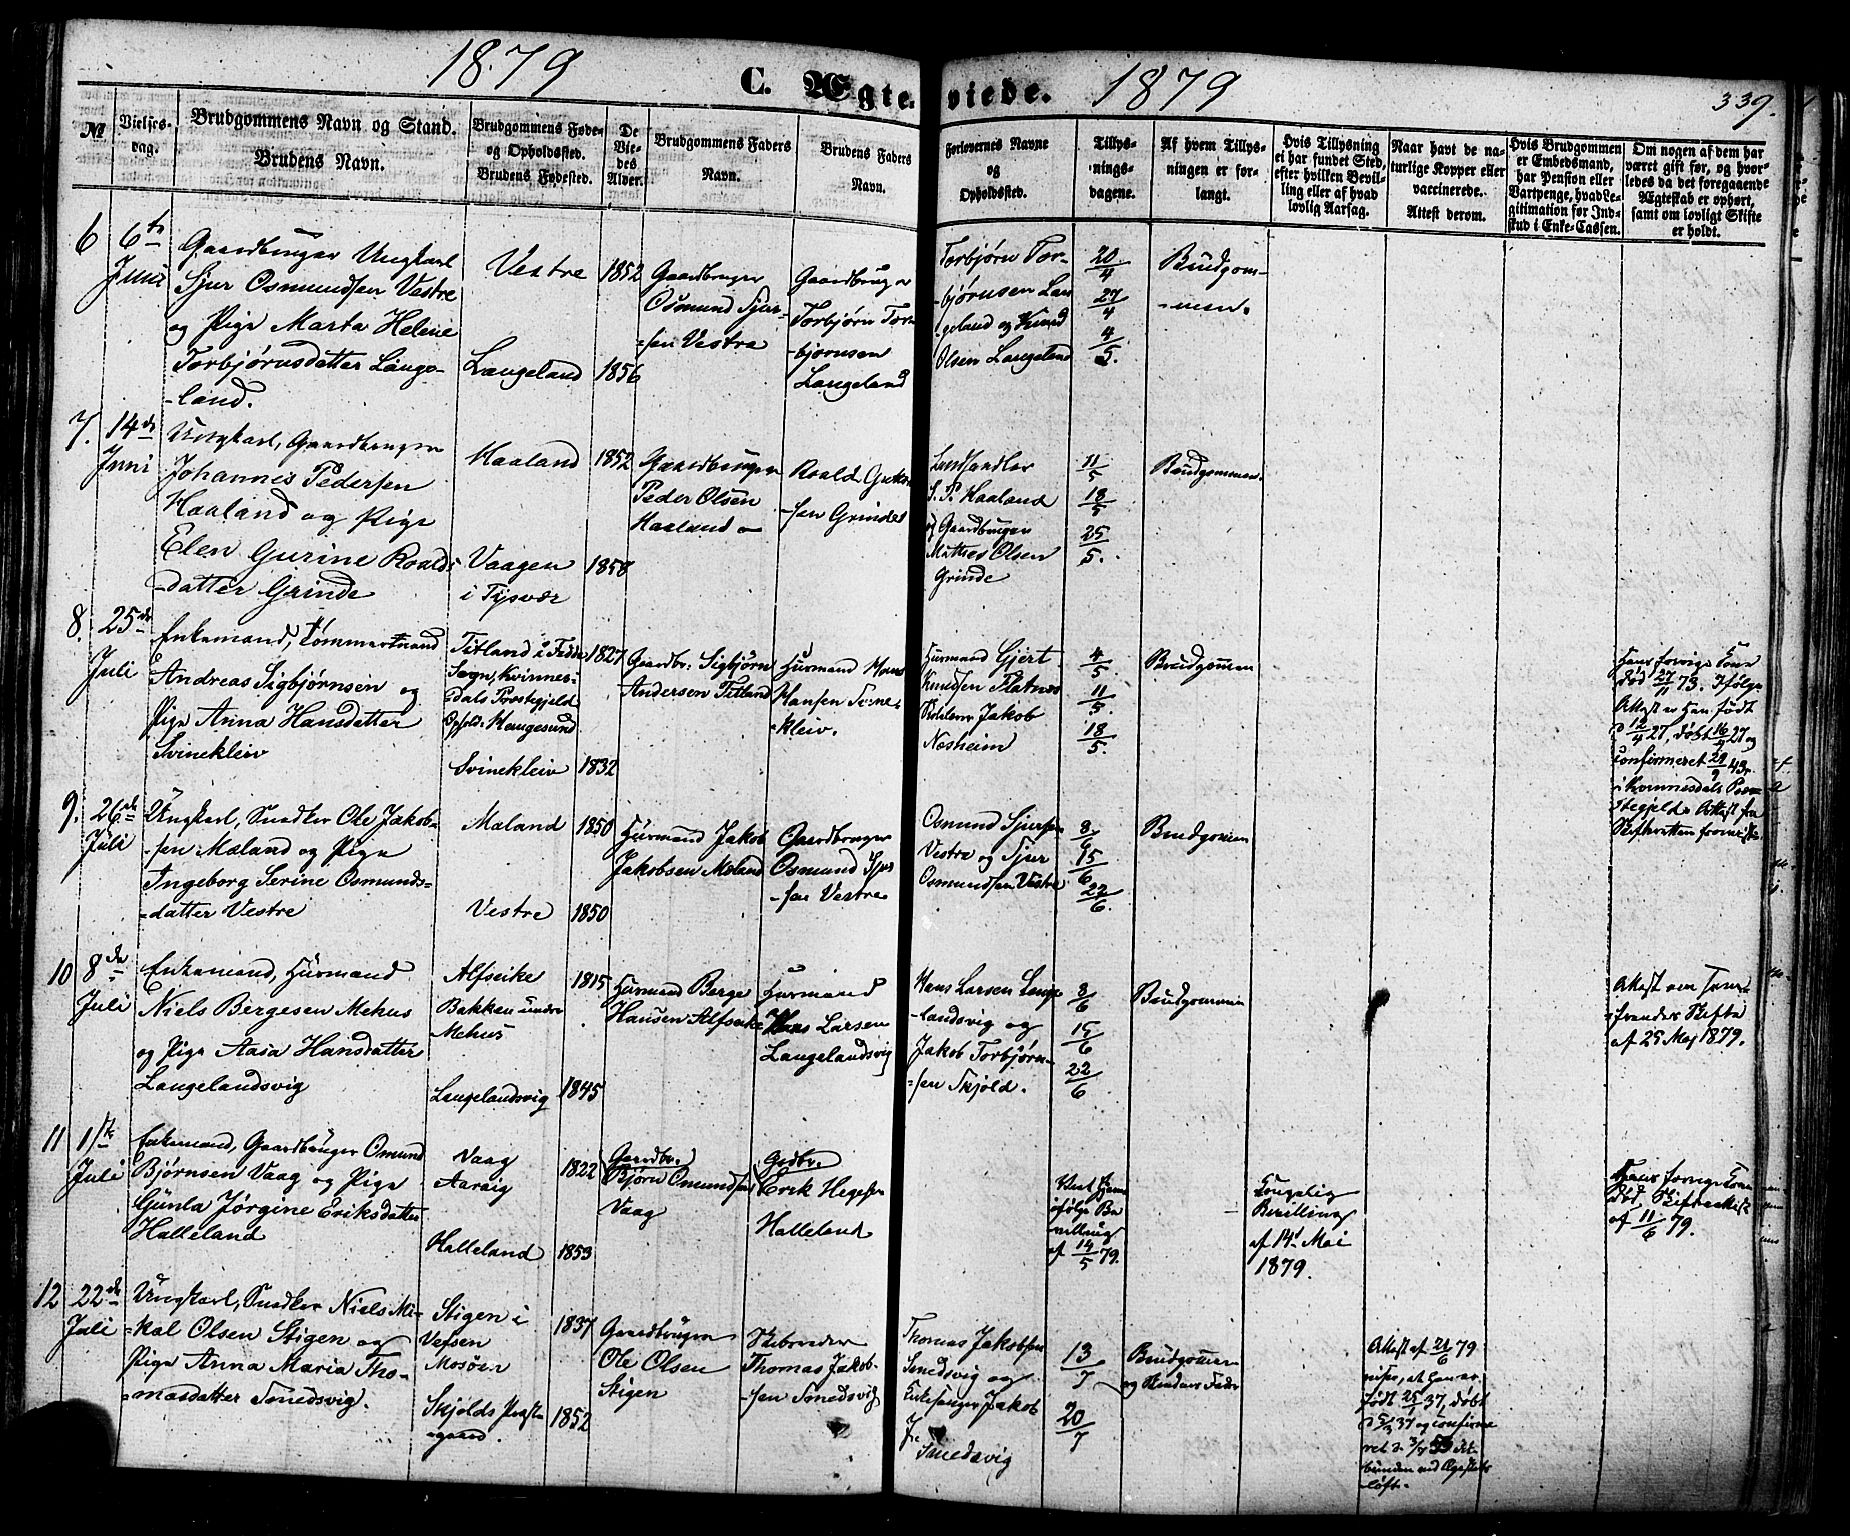 1879
C. Ægteviede.
1879
339.
№
Vielses-
dag.
Brudgommens Navn og Stand.
Brudens Navn.
Brudgommens Føde-
og Opholdssted.
Brudens Fødested.
De
Vie-
des
Alder.
Brudgommens Faders
Navn.
Brudens Faders
Navn.
Forlovernes Navne
og
Opholdssted.
Tillys-
nings-
dagene.
Af hvem Tillys-
ningen er for-
langt.
Hvis Tillysning
ei har fundet Sted,
efter hvilken Bevil-
ling eller af hvad
lovlig Aarsag.
Naar havt de na-
turlige Kopper eller
vaccinerede.
Attest derom.
Hvis Brudgommen
er Embedsmand,
har Pension eller
Vartpenge, hvad Le-
gitimation for Ind-
skud i Enke-Cassen.
Om nogen af dem har
været gift før, og hvor-
ledes da det foregaaende
Ægteskab er ophørt,
samt om lovligt Skifte
er holdt.
6
6te
Juni
Gaardbruger Ungkarl
Sjur Osmundsen Vestre
og Pige Marta Helene
Torbjørnsdatter Lange-
-land.
Vestre
Langeland
1852
1856
Gaardbruger
Osmund Sjur-
-sen Vestre
Gaardbruger
Torbjørn Tor-
-bjørnsen
Langeland
Torbjørn Tor-
-bjørnsen Lan-
-geland og Knud
Olsen Langeland
20/4
27/4
4/5.
Brudgom-
-men.
7.
14de
Juni
Ungkarl, Gaardbruger
Johannes Pedersen
Haaland og Pige
Elen Gurine Roalds-
-datter Grinde
Haaland
Vaagen
i Tysvær
1852
1858
Gaardbruger
Peder Olsen
Haaland
Roald
-sen Grinde
Landhandler
S. P. Haaland
og Gaardbruger
Mathes Olsen
Grinde
11/5
18/5
25/5.
Brudgommen.
8.
25de
Juli
Enkemand, Tømmermand
Andreas Sigbjørnsen og
Pige Anna Hansdatter
Svinekleiv
Titland i Fedde
Sogn, Kvinnes-
dals Præstegjeld
Opholds. Haugesund
Svinekleiv
1827
1832
Gaardbr. Sigbjørn
Andersen Titland
Husmand Hans
Hansen Svine-
kleiv.
Husmand Gjert
Knudsen Platnes
Jakob
Nesheim
4/5.
11/5.
18/5.
Brudgommen
Hans forrige Kone
død 27/11 73. Ifølge
Attest er han født
d 12/4 27, døbt 16/4 27 og
confirmeret 24/9 43
i Kvinnesdals Præ-
stegjeld. Attest fra
Skifteretten
9.
26de
Juli
Ungkarl, Snedker Ole Jakob-
-sen Mæland og Pige
Ingeborg Serine Osmunds-
-datter Vestre
Mæland
Vestre
1850
1850
Husmand Jakob
Jakobsen Mæland
Gaardbruger
Osmund Sjur-
-sen Vestre
Osmund Sjursen
Vestre og Sjur
Osmundsen Vestre
8/6
15/6
22/6.
Brudgommen
10
8de
Juli
Enkemand, Husmand
Niels Bergesen Mehus
og Pige Aasa Hansdatter
Langelandsvig
Alfseike
Bakken under
Mehus
Langelandsvig
1815
1845
Husmand Berge
Hansen Alfseike
Husmand
Hans Larsen
Langelandsvig
Hans Larsen Lange-
-landsvig og
Jakob Torbjørn-
-sen Skjold.
8/6
15/6
22/6
Brudgommen
Attest om
Skifte
af 25 Maj 1879.
11
1ste
Juli
Enkemand, Gaardbruger Omund
Bjørnsen Vaag og Pige
Gunla Jørgine Eriksdatter
Halleland
Vaag
Aarvig
Halleland
1822
1853
Gaardbr.
Bjørn Omundsen
Vaag
Grdbr.
Erik
Halleland
Viet hjem
ifølge Be
villing
af 14/5 79.
Kongelig
Bevilling
af 14 Mai
1879.
Hans forrige Kone
død.
af 11/6 79.
12
22de
Juli
Ungkarl, Snedker Niels Mi-
-kal Olsen Stigen og
Pige Anna Maria Tho-
-masdatter Smedsvig.
Stigen i
Vefsen
Mosøen
Skjolds Præste-
-gaard.
1837
1852
Gaardbruger
Ole Olsen
Stigen
Skibsreder
Thomas Jakob-
-sen Smedsvig
Thomas Jakobsen
Smedsvig og
Kirkesanger Jakob
Smedsvig
13/7
20/7
Brudgommen
og Brudens Fader
Attest af 21/6 79
viser, at han er
født 25/1 37, døbt
d 5/3 37 og confirme
ret d. 3/7 53